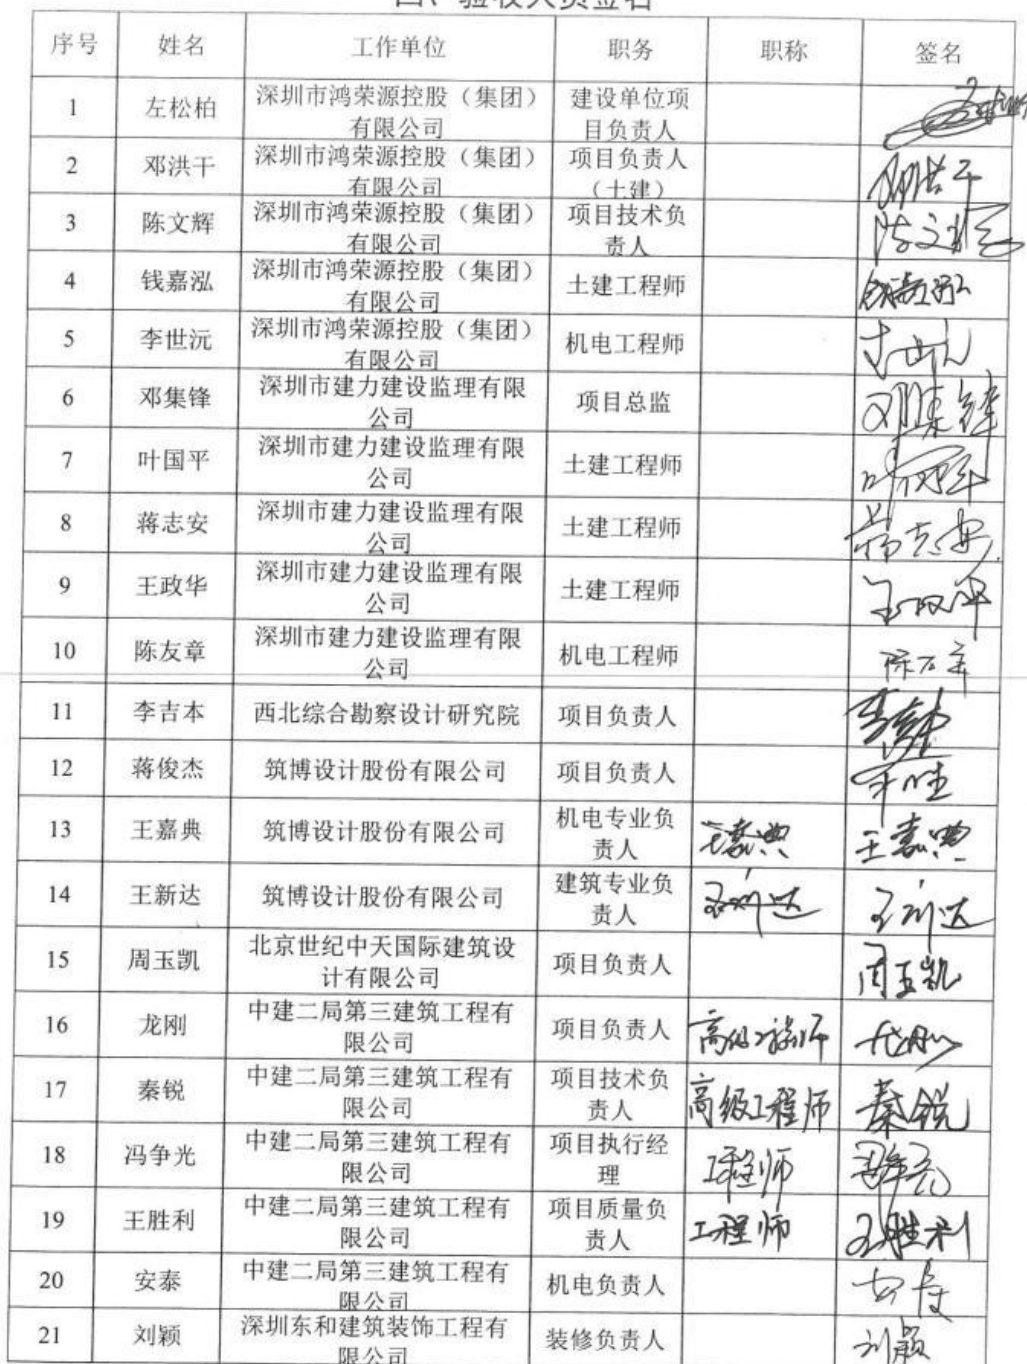 四、验收人员签名
序号 姓名 工作单位 职务 职称 签名
1 左松柏 深圳市鸿荣源控股（集团）有限公司 建设单位项目负责人
2 邓洪干 深圳市鸿荣源控股（集团）有限公司 项目负责人（土建） 邓洪干
3 陈文辉 深圳市鸿荣源控股（集团）有限公司 项目技术负责人 陈文辉
4 钱嘉泓 深圳市鸿荣源控股（集团）有限公司 土建工程师 钱嘉泓
5 李世沅 深圳市鸿荣源控股（集团）有限公司 机电工程师 李世沅
6 邓集锋 深圳市建力建设监理有限公司 项目总监 邓集锋
7 叶国平 深圳市建力建设监理有限公司 土建工程师 叶国平
8 蒋志安 深圳市建力建设监理有限公司 土建工程师 蒋志安
9 王政华 深圳市建力建设监理有限公司 土建工程师 王政华
10 陈友章 深圳市建力建设监理有限公司 机电工程师 陈友章
11 李吉本 西北综合勘察设计研究院 项目负责人
12 蒋俊杰 筑博设计股份有限公司 项目负责人
13 王嘉典 筑博设计股份有限公司 机电专业负责人 王嘉典 王嘉典
14 王新达 筑博设计股份有限公司 建筑专业负责人 王新达 王新达
15 周玉凯 北京世纪中天国际建筑设计有限公司 项目负责人 周玉凯
16 龙刚 中建二局第三建筑工程有限公司 项目负责人 高级工程师 龙刚
17 秦锐 中建二局第三建筑工程有限公司 项目技术负责人 高级工程师 秦锐
18 冯争光 中建二局第三建筑工程有限公司 项目执行经理 工程师
19 王胜利 中建二局第三建筑工程有限公司 项目质量负责人 工程师 王胜利
20 安泰 中建二局第三建筑工程有限公司 机电负责人 安泰
21 刘颖 深圳东和建筑装饰工程有限公司 装修负责人 刘颖